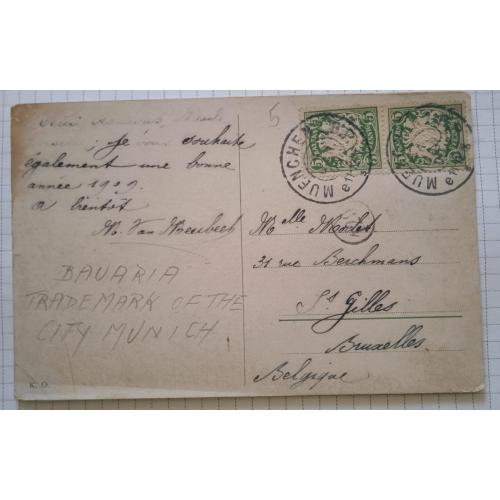 je vous souhaite
également une bonne
année 1909.
a bientôt
M. Van
BAVARIA
TRADEMARK OF THE
CITY MUNICH
K. O.
5
MUENCHEN
MUENCHEN
5
5
Mlle
31 rue Berchmans
St Gilles
Bruxelles
Belgique